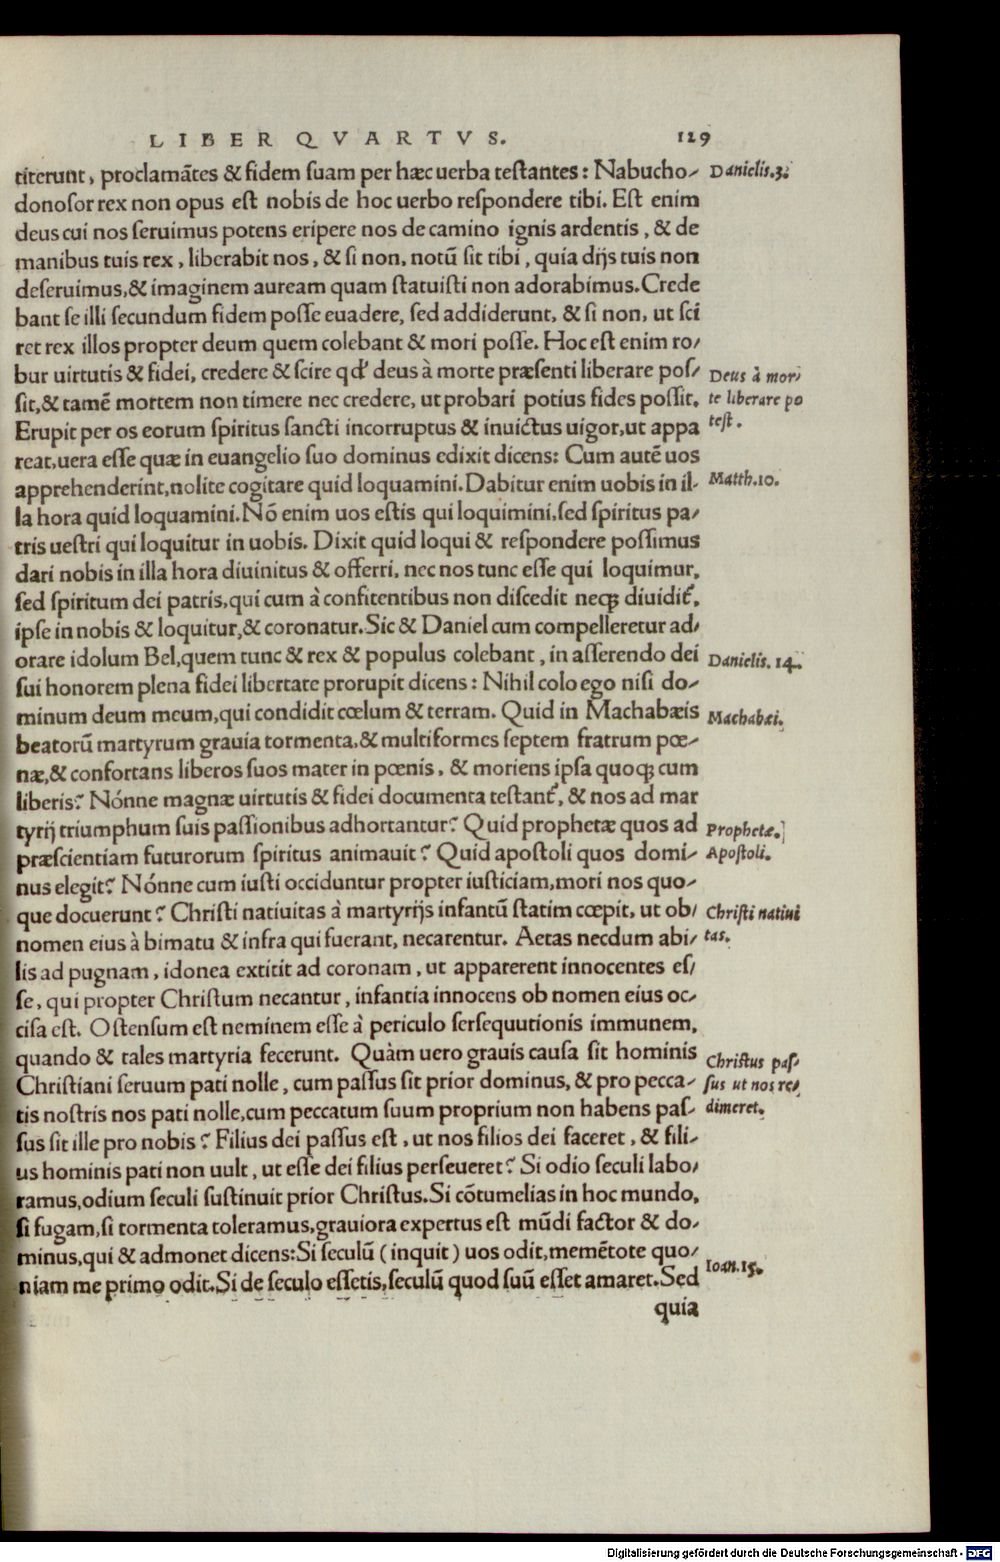 LIBER QVARTVS. 129
titerunt, proclamātes & fidem suam per hæc uerba testantes: Nabucho- Danielis.3.
donosor rex non opus est nobis de hoc uerbo respondere tibi. Est enim
deus cui nos seruimus potens eripere nos de camino ignis ardentis, & de
manibus tuis rex, liberabit nos, & si non, notū sit tibi, quia dijs tuis non
deseruimus,& imaginem auream quam statuisti non adorabimus. Crede
bant se illi secundum fidem posse euadere, sed addiderunt, & si non, ut sci
ret rex illos propter deum quem colebant & mori posse. Hoc est enim ro/
bur uirtutis & fidei, credere & scire qd' deus à morte præsenti liberare pos/ Deus à mor/
sit,& tamē mortem non timere nec credere, ut probari potius fides possit. te liberare po
Erupit per os eorum spiritus sancti incorruptus & inuictus uigor,ut appa test.
reat,uera esse quæ in euangelio suo dominus edixit dicens: Cum autē uos
apprehenderint,nolite cogitare quid loquamini. Dabitur enim uobis in il- Matth.10.
la hora quid loquamini. Nō enim uos estis qui loquimini,sed spiritus pa/
tris uestri qui loquitur in uobis. Dixit quid loqui & respondere possimus
dari nobis in illa hora diuinitus & offerri, nec nos tunc esse qui loquimur,
sed spiritum dei patris,qui cum à confitentibus non discedit neqꝫ diuidit᷑,
ipse in nobis & loquitur,& coronatur. Sic & Daniel cum compelleretur ad/
orare idolum Bel,quem tunc & rex & populus colebant, in asserendo dei Danielis. 14.
sui honorem plena fidei libertate prorupit dicens: Nihil colo ego nisi do-
minum deum meum,qui condidit cœlum & terram. Quid in Machabæis Machabæi.
beatorū martyrum grauia tormenta,& multiformes septem fratrum pœ-
næ,& confortans liberos suos mater in pœnis, & moriens ipsa quoqꝫ cum
liberis? Nónne magnæ uirtutis & fidei documenta testant᷑, & nos ad mar
tyrij triumphum suis passionibus adhortantur? Quid prophetæ quos ad Prophetæ.
præscientiam futurorum spiritus animauit? Quid apostoli quos domi- Apostoli.
nus elegit? Nónne cum iusti occiduntur propter iusticiam,mori nos quo-
que docuerunt? Christi natiuitas à martyrijs infantū statim cœpit, ut ob/ Christi natiui
nomen eius à bimatu & infra qui fuerant, necarentur. Aetas necdum abi/ tas.
lis ad pugnam, idonea extitit ad coronam, ut apparerent innocentes es/
se, qui propter Christum necantur, infantia innocens ob nomen eius oc-
cisa est. Ostensum est neminem esse à periculo sersequutionis immunem,
quando & tales martyria fecerunt. Quàm uero grauis causa sit hominis Christus pas/
Christiani seruum pati nolle, cum passus sit prior dominus, & pro pecca- sus ut nos re/
tis nostris nos pati nolle,cum peccatum suum proprium non habens pas- dimeret.
sus sit ille pro nobis? Filius dei passus est, ut nos filios dei faceret, & fili-
us hominis pati non uult, ut esse dei filius perseueret? Si odio seculi labo/
ramus,odium seculi sustinuit prior Christus. Si cōtumelias in hoc mundo,
si fugam,si tormenta toleramus,grauiora expertus est mūdi factor & do-
minus,qui & admonet dicens: Si seculū (inquit) uos odit,memētote quo/
niam me primo odit. Si de seculo essetis,seculū quod suū esset amaret. Sed Ioan.15.
quia
Digitalisierung gefördert durch die Deutsche Forschungsgemeinschaft - DFG